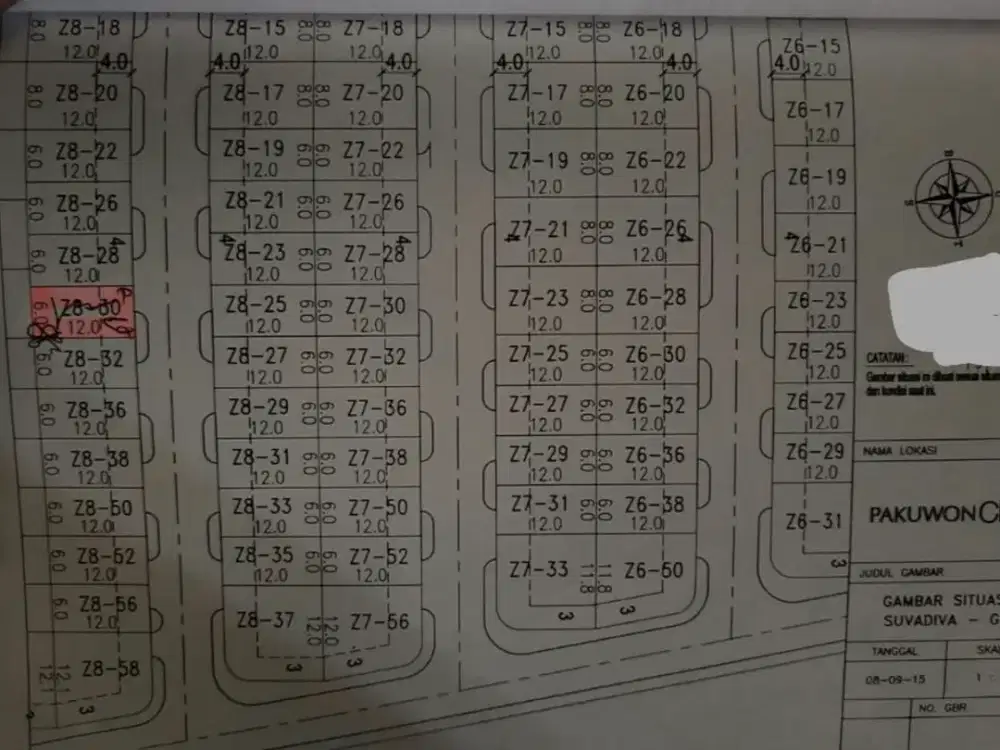 Z8-18
8.0
12.0
4.0
Z8-20
8.0
12.0
Z8-22
6.0
12.0
Z8-26
6.0
12.0
Z8-28
6.0
12.0
4
Z8-30
6.0
12.0
Z8-32
6.0
12.0
Z8-36
6.0
12.0
Z8-38
6.0
12.0
Z8-50
6.0
12.0
Z8-52
6.0
12.0
Z8-56
6.0
12.0
Z8-58
12.1
12.1
3
Z8-15 8.0 8.0 Z7-18
12.0 12.0
4.0 4.0
Z8-17 8.0 8.0 Z7-20
12.0 12.0
Z8-19 6.0 6.0 Z7-22
12.0 12.0
Z8-21 6.0 6.0 Z7-26
12.0 12.0
4 4
Z8-23 6.0 6.0 Z7-28
12.0 12.0
Z8-25 6.0 6.0 Z7-30
12.0 12.0
Z8-27 6.0 6.0 Z7-32
12.0 12.0
Z8-29 6.0 6.0 Z7-36
12.0 12.0
Z8-31 6.0 6.0 Z7-38
12.0 12.0
Z8-33 6.0 6.0 Z7-50
12.0 12.0
Z8-35 6.0 6.0 Z7-52
12.0 12.0
Z8-37 12.0 12.0 Z7-56
3 3
Z7-15 8.0 8.0 Z6-18
12.0 12.0
4.0 4.0
Z7-17 8.0 8.0 Z6-20
12.0 12.0
Z7-19 8.0 8.0 Z6-22
12.0 12.0
Z7-21 8.0 8.0 Z6-26
4 4
12.0 12.0
Z7-23 8.0 8.0 Z6-28
12.0 12.0
Z7-25 6.0 6.0 Z6-30
12.0 12.0
Z7-27 6.0 6.0 Z6-32
12.0 12.0
Z7-29 6.0 6.0 Z6-36
12.0 12.0
Z7-31 6.0 6.0 Z6-38
12.0 12.0
Z7-33 11.8 11.8 Z6-50
3 3
Z6-15
4.0 12.0
Z6-17
12.0
Z6-19
12.0
4 Z6-21
12.0
Z6-23
12.0
Z6-25
12.0
Z6-27
12.0
Z6-29
12.0
Z6-31
3
CATATAN:
Gambar situasi ini dibuat sesuai
dan kondisi saat ini.
NAMA LOKASI
PAKUWON
JUDUL GAMBAR
GAMBAR
SUVADIVA -
TANGGAL
08-09-15
1 :
NO. GBR.